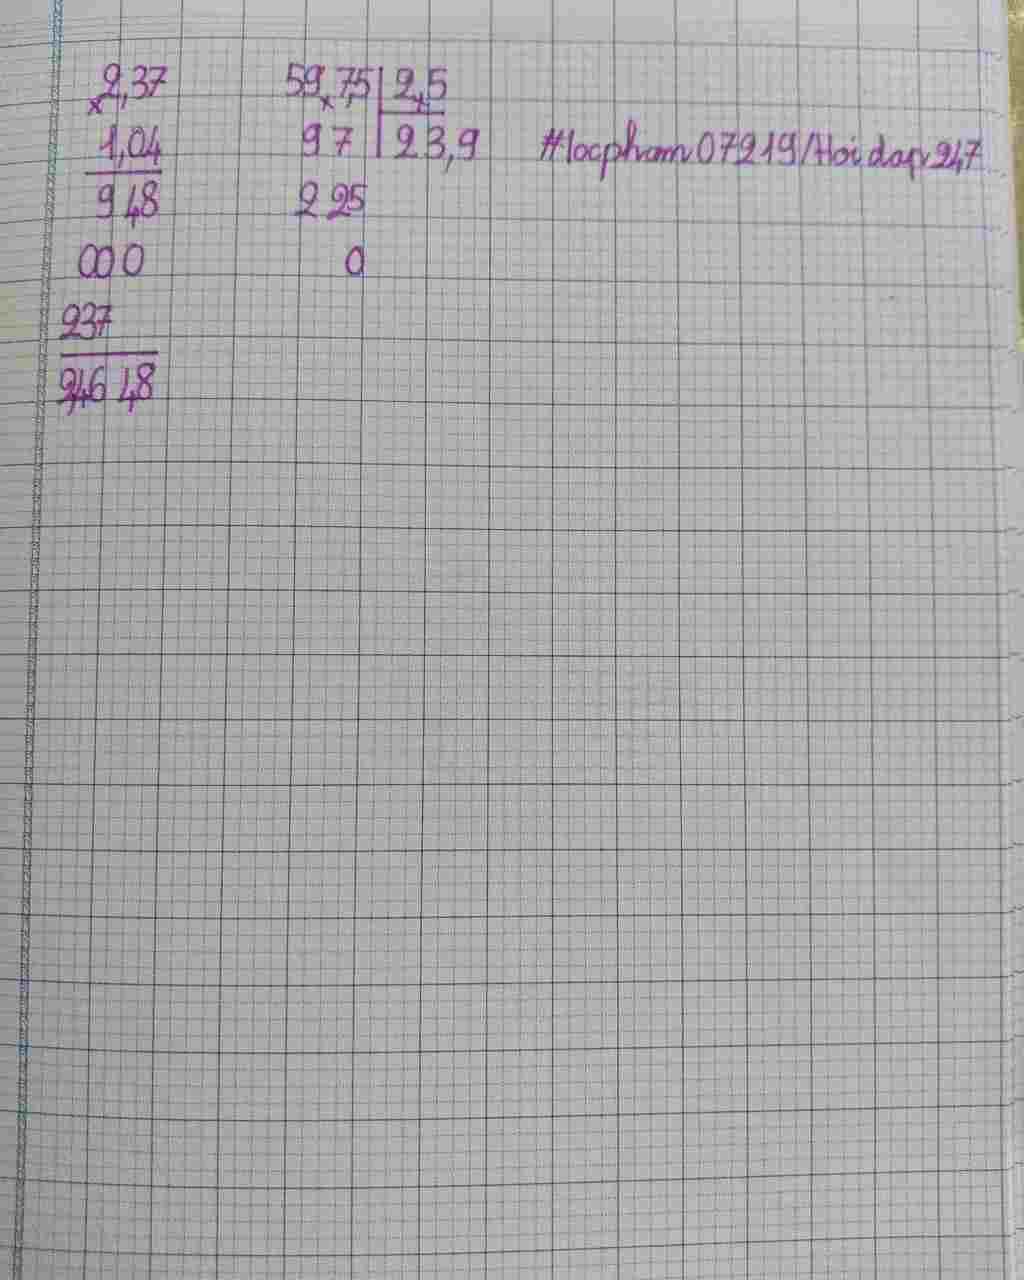 2,37
×
1,04
948
000
237
2,4648
59,75 2,5
97 23,9
225
0
#locpham07219/Hoidap247